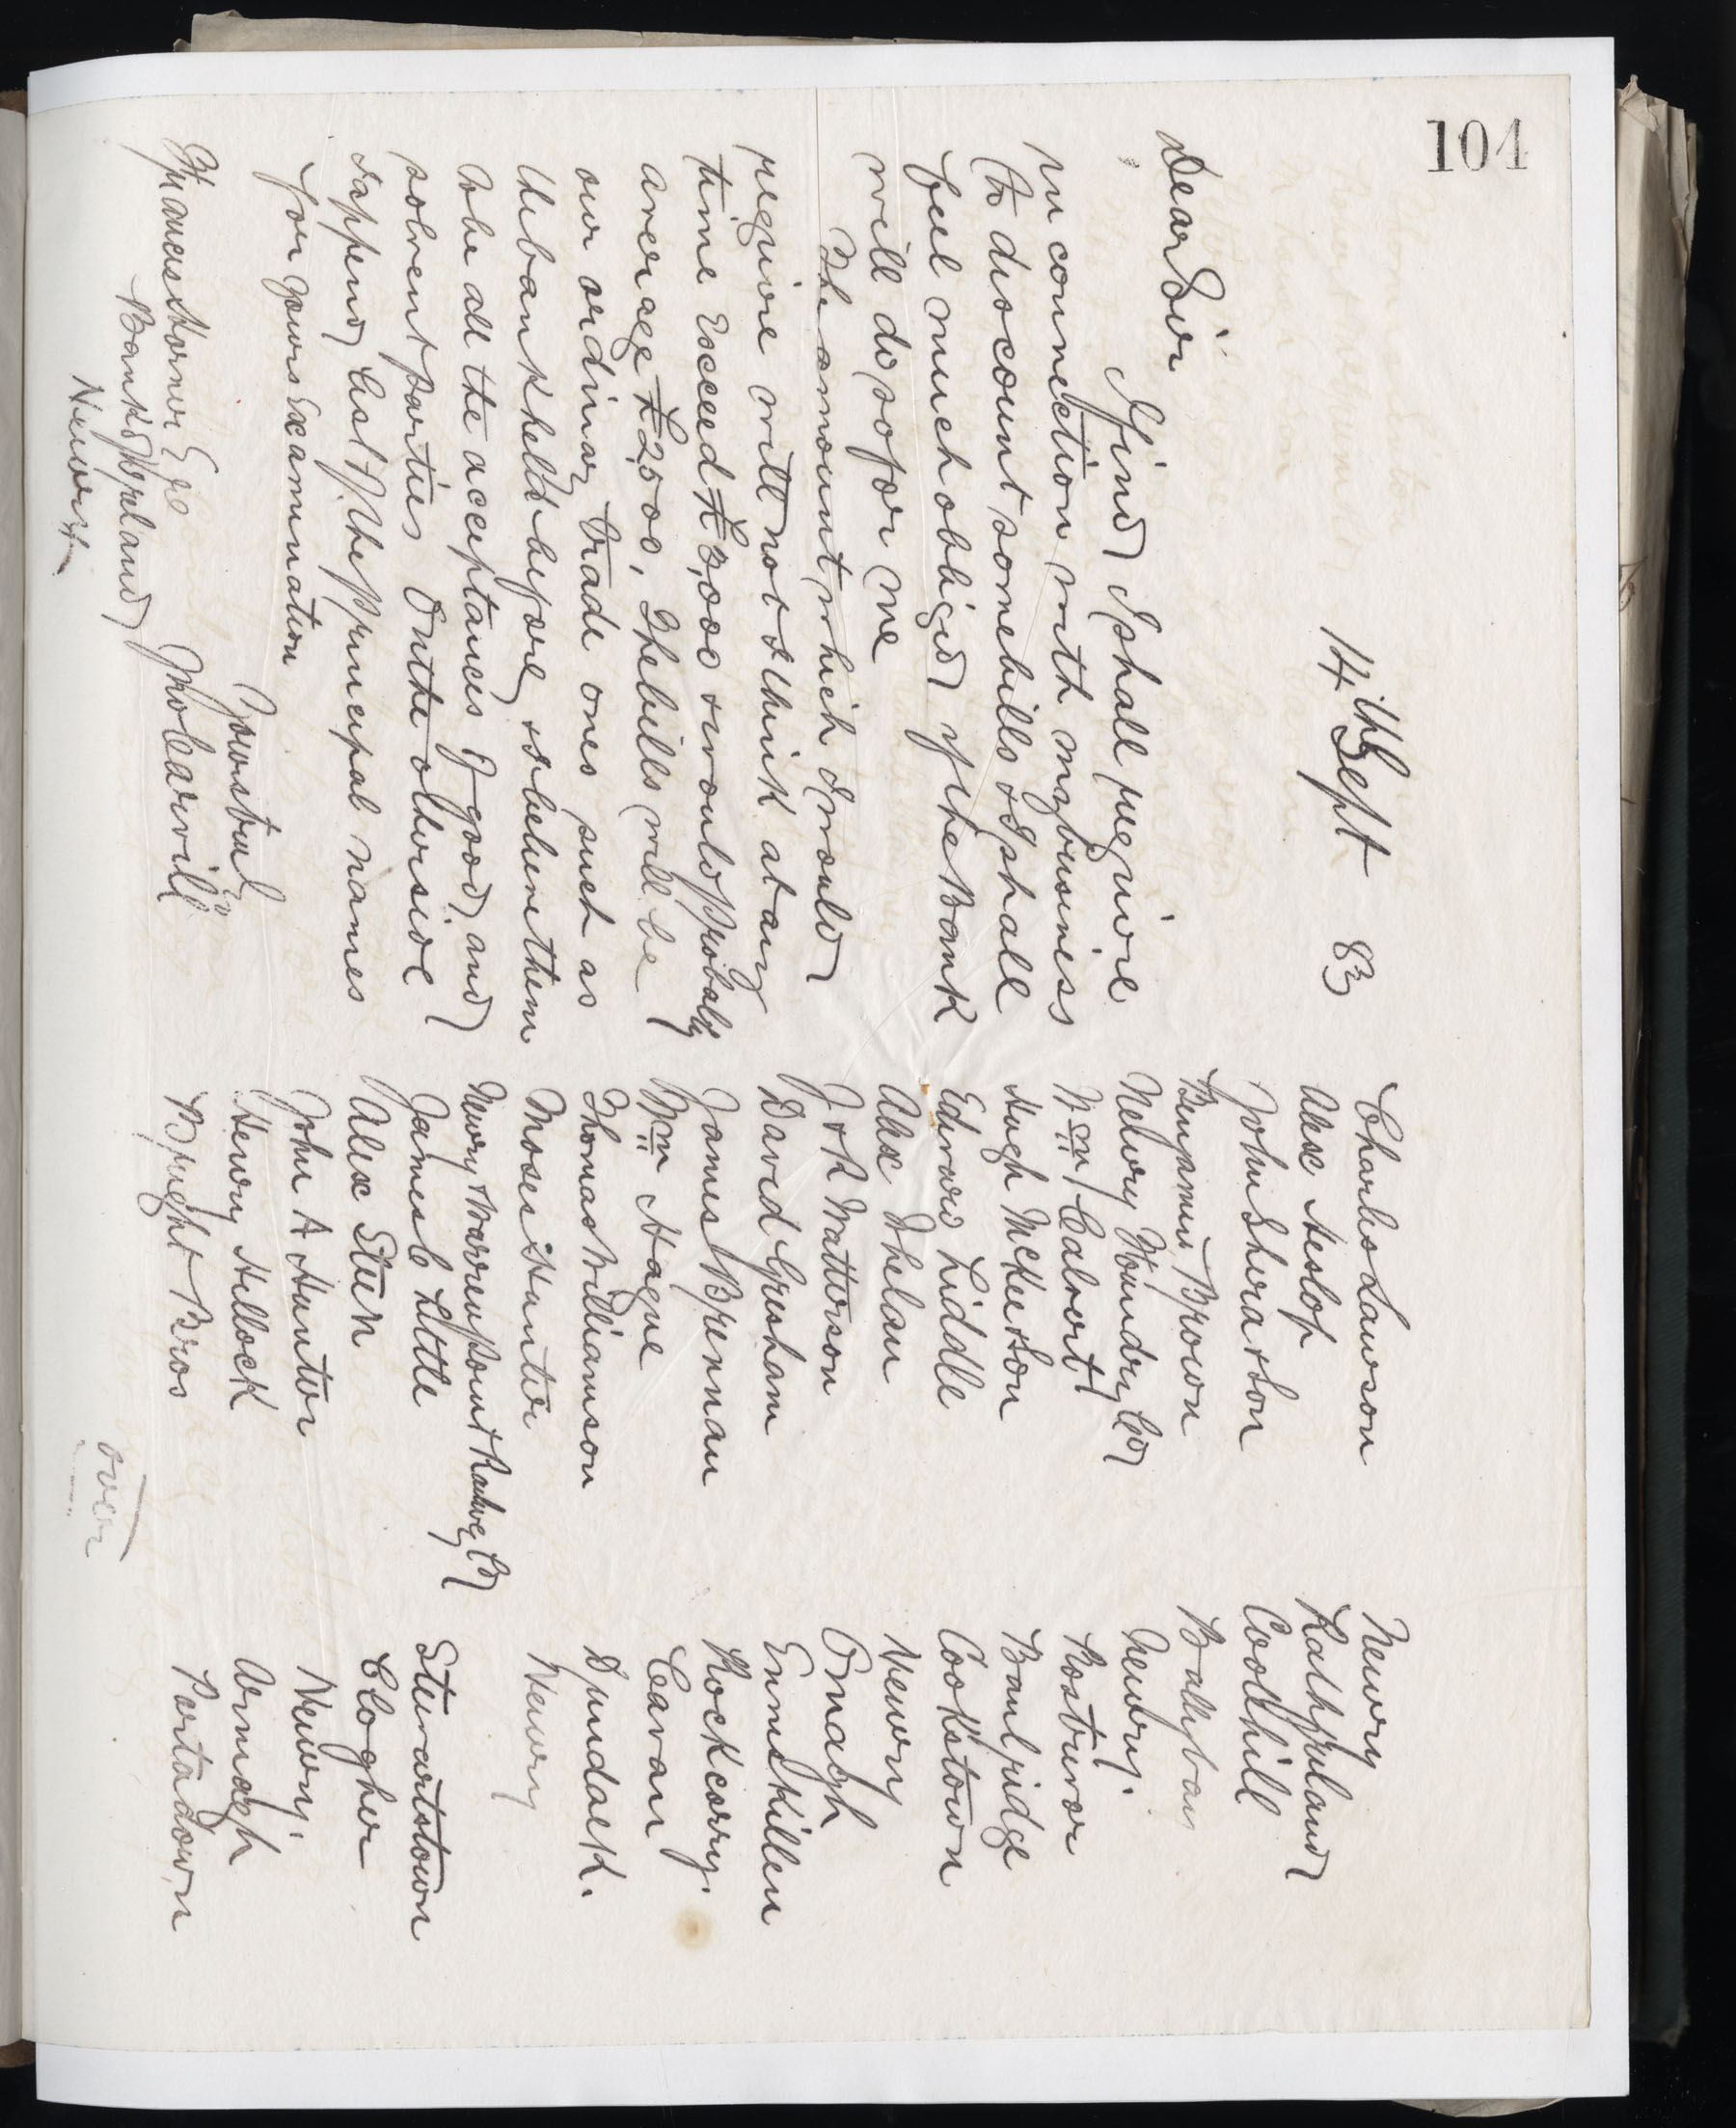 104
14th Sept 83
Dear Sir
I find I shall require
in connection with my business
to discount some bills & I shall
feel much obliged if the Bank
will do so for me
The amount which I would
require will not I think at any
time Exceed £3,000 & would probably
average £2,500, The bills will be
our ordinary trade ones such as
the bank held before & I believe them
to be all the acceptances of good and
solvent parties On the other side
I append list of the principal names
for your Examination
Yours truly
Jno Carvill
Francis Horner Esq
Bank of Ireland
Newry
Charles Lawson Newry
Alex Heslop Rathfriland
John Shera & Son Cootehill
Benjamin Brown Ballybay
Newry Foundry Co Newry.
Wm Calvert Rostrevor
Hugh McKee & Son Banbridge
Edward Liddle Cookstown
Alex Whelan Newry
J & R Watterson Omagh
David Gresham Enniskillen
James Brennan Rockcorry.
Wm Hague Cavan
Thomas Williamson Dundalk.
Moses Hunter Newry
Newry & Warrenpoint Railway Co
James C Little Stewartstown
Alex Steen Clogher
John A Hunter Newry.
Henry Hillock Armagh
Bright Bros Portadown
over